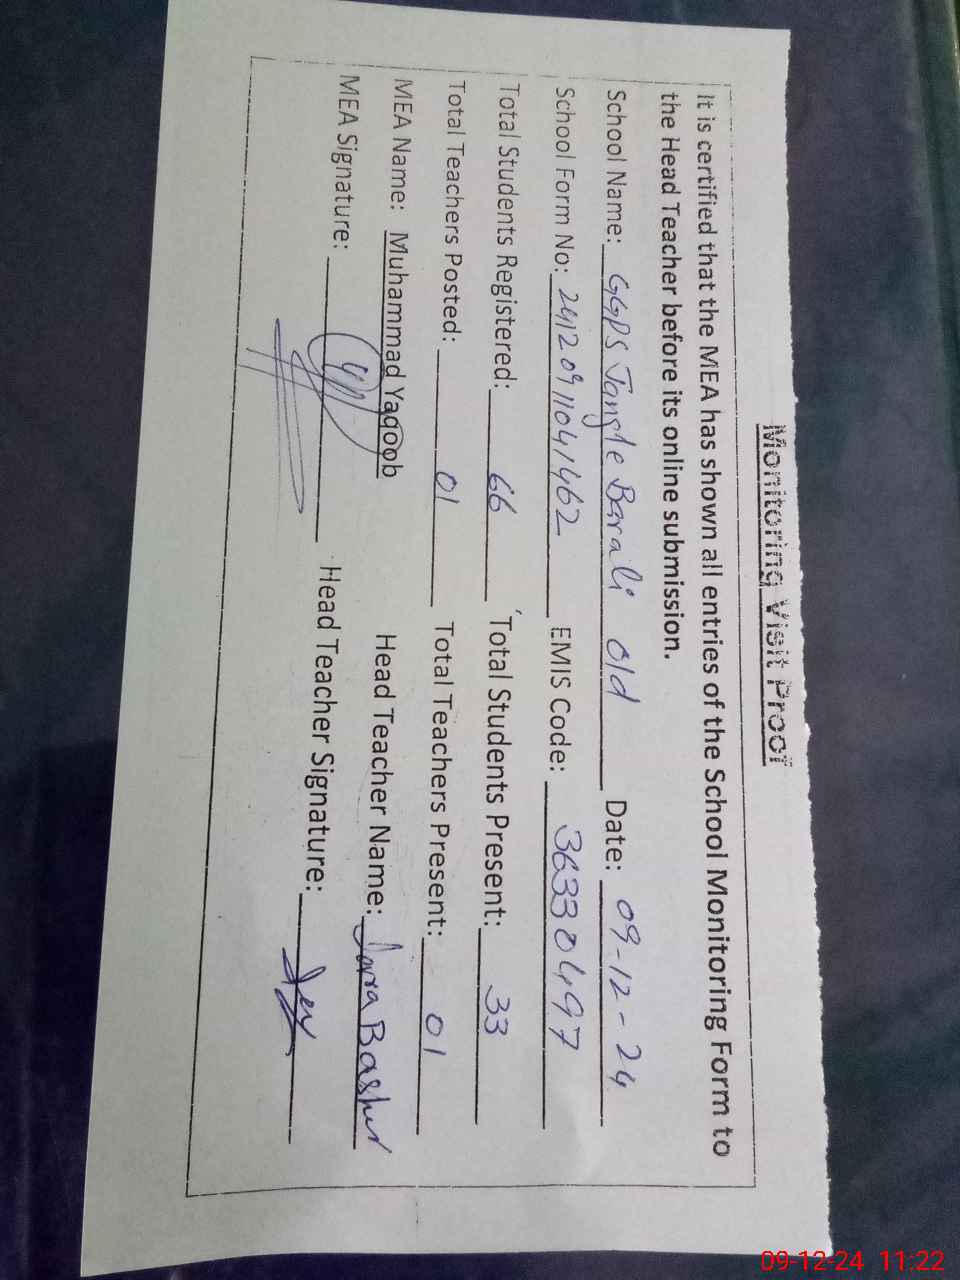 Monitoring Visit Proof
It is certified that the MEA has shown all entries of the School Monitoring Form to
the Head Teacher before its online submission.
School Name: GGPS Jangle Barali old Date: 09-12-24
School Form No: 24120911041462 EMIS Code: 36330497
Total Students Registered: 66 Total Students Present: 33
Total Teachers Posted: 01 Total Teachers Present: 01
MEA Name: Muhammad Yaqoob Head Teacher Name:
MEA Signature: Head Teacher Signature:
09-12-24 11:22